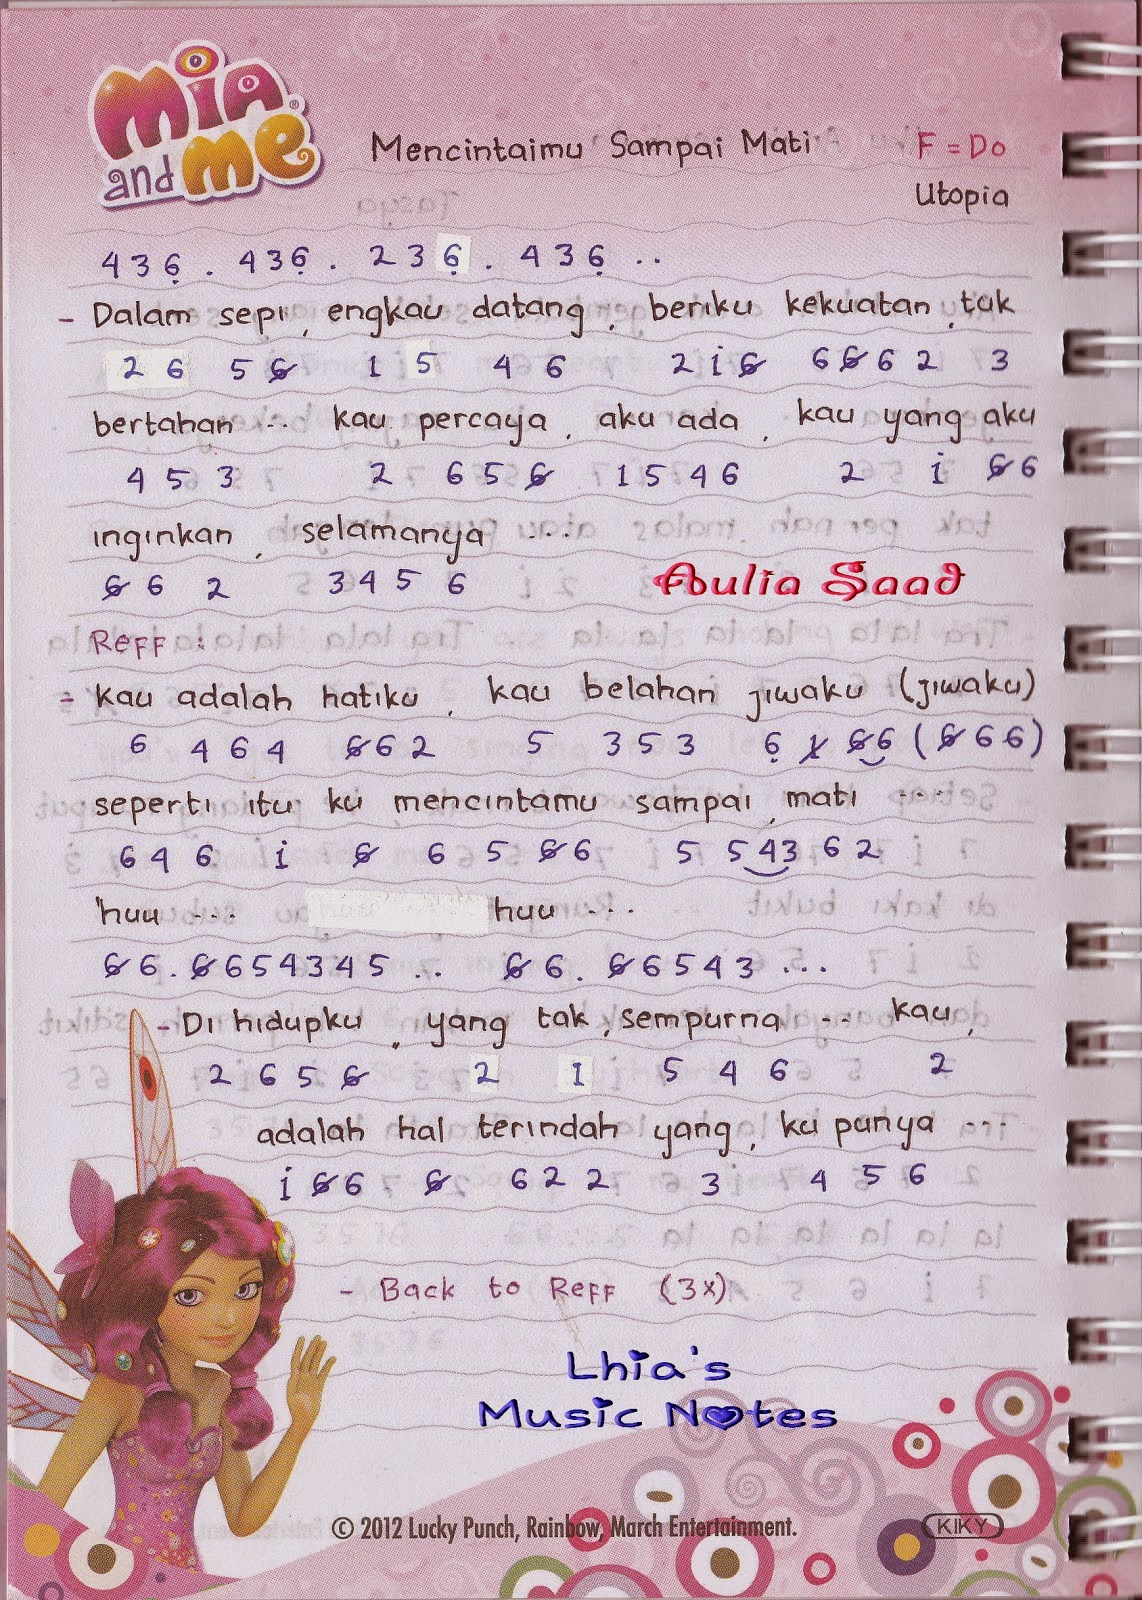 Mia and me
Mencintaimu Sampai Mati F = Do
Utopia
4 3 6̣ . 4 3 6̣ . 2 3 6̣ . 4 3 6̣ . .
- Dalam sepi, engkau datang, beriku kekuatan, tak
2 6 5 6̸ 1 5 4 6 2 i 6̸ 6 6̸ 6 2 3
bertahan ... kau percaya, aku ada, kau yang aku
4 5 3 2 6 5 6̸ 1 5 4 6 2 i 6̸ 6
inginkan, selamanya ...
6̸ 6 2 3 4 5 6
Aulia Saad
Reff :
- Kau adalah hatiku, kau belahan jiwaku (jiwaku)
6 4 6 4 6̸ 6 2 5 3 5 3 6̣ 1̸ 6̸ 6 (6̸ 6 6)
seperti itu ku mencintamu sampai, mati ....
6 4 6 i 6̸ 6 5 6̸ 6 5 5 4 3 6 2
huu ... huu ...
6̸ 6 . 6̸ 6 5 4 3 4 5 ... 6̸ 6 . 6̸ 6 5 4 3 ...
- Di hidupku, yang tak, sempurna ... kau,
2 6 5 6̸ 2 1 5 4 6 2
adalah hal terindah yang, ku punya ...
i 6̸ 6 6̸ 6 2 2 3 4 5 6
- Back to Reff (3x)
Lhia's
Music Notes
© 2012 Lucky Punch, Rainbow, March Entertainment.
KIKY